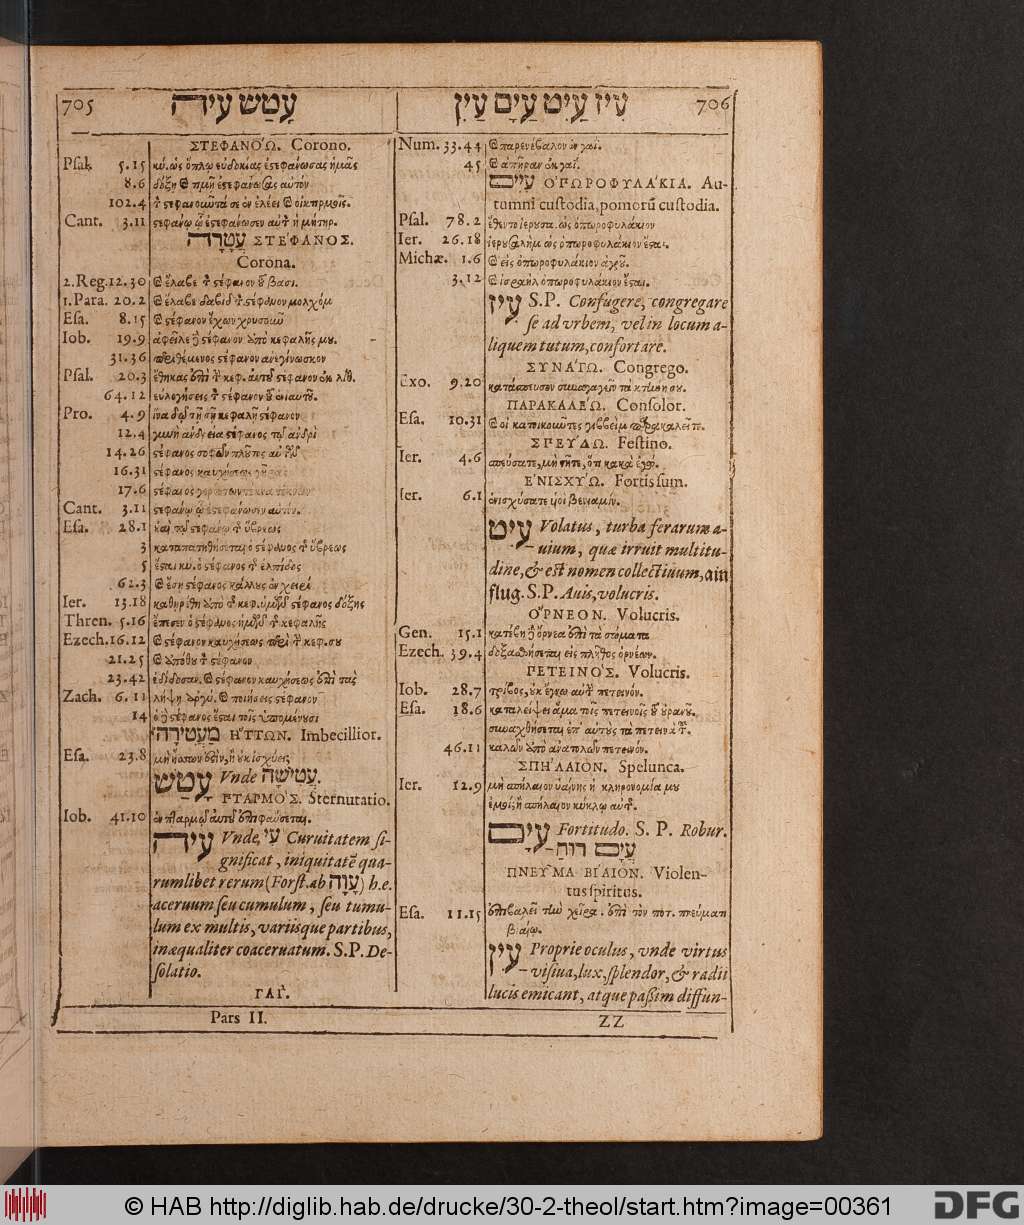 705 עָטַשׁ עִירה
ΣΤΕΦΑΝΟΏ. Corono.
Psal. 5.15 κύ. ὡς ὅπλῳ εὐδοκίας ἐστεφάνωσας ἡμᾶς
8.6 δόξῃ καὶ τιμῇ ἐστεφάνωσας αὐτόν
102.4 τ̀ στεφανοῦντά σε ἐν ἐλέει καὶ οἰκτιρμοῖς.
Cant. 3.11 στεφάνῳ ᾧ ἐστεφάνωσεν αὐτ̀ ἡ μήτηρ.
עֲטָרָה ΣΤΕΦΑΝΟΣ.
Corona.
2. Reg. 12.30 καὶ ἔλαβε τ̀ στέφανον τοῦ βασι.
1. Para. 20.2 καὶ ἔλαβε δαβὶδ τ̀ στέφανον μολχόμ
Esa. 8.15 καὶ στέφανον ἔχων χρυσοῦν
Iob. 19.9 ἀφεῖλε ἢ στέφανον ἀπὸ κεφαλῆς μου.
31.36 περιθέμενος στέφανον ἀνεγίνωσκον
Psal. 20.3 ἔθηκας ἐπὶ τ̀ κεφ. αὐτοῦ στέφανον ἐκ λίθ.
64.12 εὐλογήσεις τ̀ στέφανον τοῦ ἐνιαυτοῦ.
Pro. 4.9 ἵνα δῷ τῇ σῇ κεφαλῇ στέφανον
12.4 γυνὴ ἀνδρεία στέφανος τῷ ἀνδρὶ
14.26 στέφανος σοφῶν πλοῦτος αὐτῶν
16.31 στέφανος καυχήσεως γῆρας
17.6 στέφανος γερόντων τέκνα τέκνων
Cant. 3.11 στεφάνῳ ᾧ ἐστεφάνωσεν αὐτόν.
Esa. 28.1 οὐαὶ τῷ στεφάνῳ τ̀ ὕβρεως
3 καταπατηθήσεται ὁ στέφανος τ̀ ὕβρεως
5 ἔσται κύ. ὁ στέφανος τ̀ ἐλπίδος
62.3 καὶ ἔσῃ στέφανος κάλλους ἐν χειρὶ
Ier. 13.18 καθῃρέθη ἀπὸ τ̀ κεφ. ὑμῶν στέφανος δόξης
Thren. 5.16 ἔπεσεν ὁ στέφανος ἡμῶν τ̀ κεφαλῆς
Ezech. 16.12 καὶ στέφανον καυχήσεως περὶ τ̀ κεφ. σου
21.25 καὶ ἀπόθου τ̀ στέφανον
23.42 ἐδίδοσαν. καὶ στέφανον καυχήσεως ἐπὶ τὰς
Zach. 6.11 λήψῃ ἀργύ. καὶ ποιήσεις στέφανον
14 ὁ ἢ στέφανος ἔσται τοῖς ὑπομένουσι
מַעֲטִירָה ΗΤΤΩΝ. Imbecillior.
Esa. 23.8 μὴ ἥσσων ἐστὶν, ἢ οὐκ ἰσχύει;
עָטַשׁ Vnde עֲטִישָׁה.
ΠΤΑΡΜΟΣ. Sternutatio.
Iob. 41.10 ἐν πταρμῷ αὐτοῦ ἐπιφαύσεται.
עִירה Vnde, עִי Curuitatem si-
gnificat, iniquitatē qua-
rumlibet rerum (Forst. ab עָוָה) h.e.
aceruum seu cumulum, seu tumu-
lum ex multis, variisque partibus,
inæqualiter coaceruatum. S.P. De-
solatio.
ΓΑΙ.
Pars II.
עִיז עָיִט עַיָם עַיִן 706
Num. 33.44 καὶ παρενέβαλον ἐν γαί.
45 καὶ ἀπῆραν ἐκ γαί.
עִיִּים ΟΠΩΡΟΦΥΛΑΚΙΑ. Au-
tumni custodia, pomorū custodia.
Psal. 78.2 ἔθεντο ἱερουσα. ὡς ὀπωροφυλάκιον
Ier. 26.18 ἱερουσαλὴμ ὡς ὀπωροφυλάκιον ἔσται.
Michæ. 1.6 καὶ εἰς ὀπωροφυλάκιον ἀγροῦ.
3.12 καὶ ἱσραὴλ ὀπωροφυλάκιον ἔσται.
עִיז S.P. Confugere, congregare
se ad vrbem, vel in locum a-
liquem tutum, confortare.
ΣΥΝΑΓΩ. Congrego.
Exo. 9.20 κατάσπευσον συναγαγεῖν τὰ κτήνη σου.
ΠΑΡΑΚΑΛΕΩ. Consolor.
Esa. 10.31 καὶ οἱ κατοικοῦντες γιββεὶμ παρακαλεῖτε.
ΣΠΕΥΔΩ. Festino.
Ier. 4.6 σπεύσατε, μὴ στῆτε, ὅτι κακὰ ἐγώ.
ΕΝΙΣΧΥΩ. Fortis sum.
Ier. 6.1 ἐνισχύσατε υἱοὶ βενιαμίν.
עִיט Volatus, turba ferarum a-
uium, quæ irruit multitu-
dine, & est nomen collectiuum, ain
flug. S.P. Auis, volucris.
ΟΡΝΕΟΝ. Volucris.
Gen. 15.1 κατέβη ἢ ὄρνεα ἐπὶ τὰ σώματα
Ezech. 39.4 δοθήσεται εἰς πλῆθος ὀρνέων.
ΠΕΤΕΙΝΟΣ. Volucris.
Iob. 28.7 τρίβος, οὐκ ἔγνω αὐτ̀ πετεινόν.
Esa. 18.6 καταλείψει ἅμα τοῖς πετεινοῖς τοῦ οὐρανοῦ.
συναχθήσεται ἐπ' αὐτοὺς τὰ πετεινὰ τ̀.
46.11 καλῶν ἀπὸ ἀνατολῶν πετεινόν.
ΣΠΗΛΑΙΟΝ. Spelunca.
Ier. 12.9 μὴ σπήλαιον ὑαίνης ἡ κληρονομία μου
ἐμοί; ἢ σπήλαιον κύκλῳ αὐτ̀.
עִיָם Fortitudo. S. P. Robur.
עֲיָם רוּחַ
ΠΝΕΥΜΑ ΒΙΑΙΟΝ. Violen-
tus spiritus.
Esa. 11.15 ἐπιβαλεῖ τὴν χεῖρα. ἐπὶ τὸν ποτ. πνεύματι
βιαίῳ.
עִיַן Proprie oculus, vnde virtus
visiua, lux, splendor, & radii
lucis emicant, atque passim diffun-
ZZ
© HAB http://diglib.hab.de/drucke/30-2-theol/start.htm?image=00361
DFG